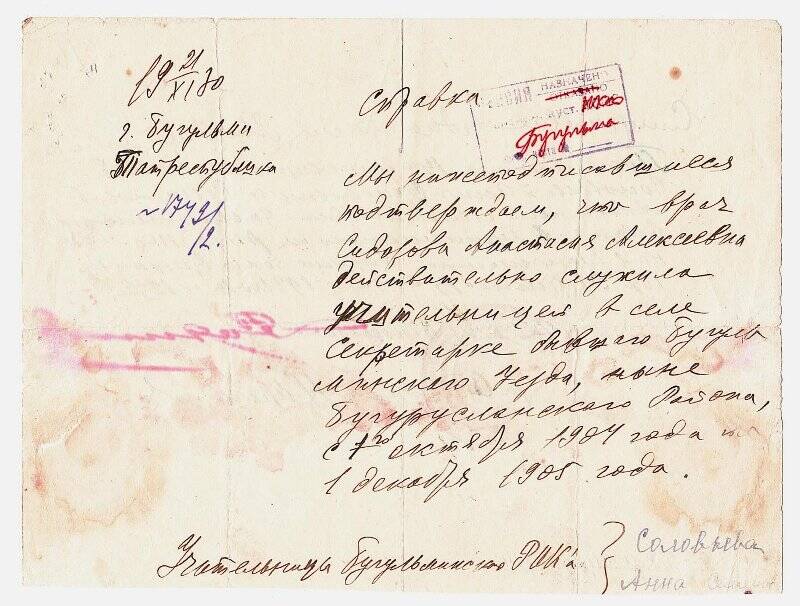 19 21/XI 30
г. Бугульми
Татреспублика
№1749/2.
Справка
НАЗНАЧЕНО
Бугульма
Мы нижеподписавшиеся
подтверждаем, что врач
Сидорова Анастасия Алексеевна
действительно служила
учительницей в селе
Секретарке бывшего Бугуль
минского Уезда, ныне
Бугурусланского Района,
с 1го октября 1904 года по
1 декабря 1905 года.
Учительницы Бугульминско
Соловьева
Анна